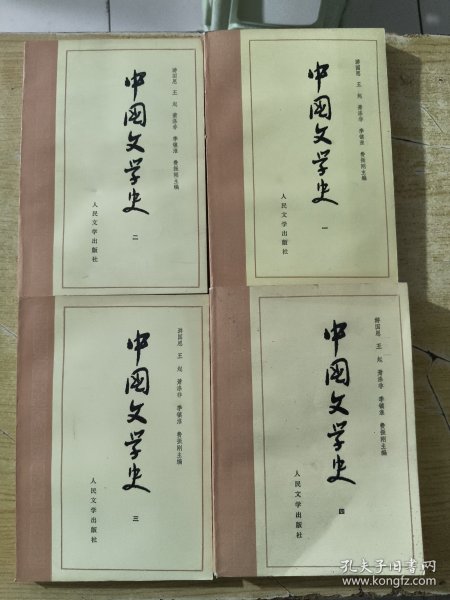 中国文学史
二
游国恩 王起 萧涤非 季镇淮 费振刚主编
人民文学出版社
中国文学史
一
游国恩 王起 萧涤非 季镇淮 费振刚主编
人民文学出版社
中国文学史
三
游国恩 王起 萧涤非 季镇淮 费振刚主编
人民文学出版社
中国文学史
四
游国恩 王起 萧涤非 季镇淮 费振刚主编
人民文学出版社
孔夫子旧书网
www.kongfz.com